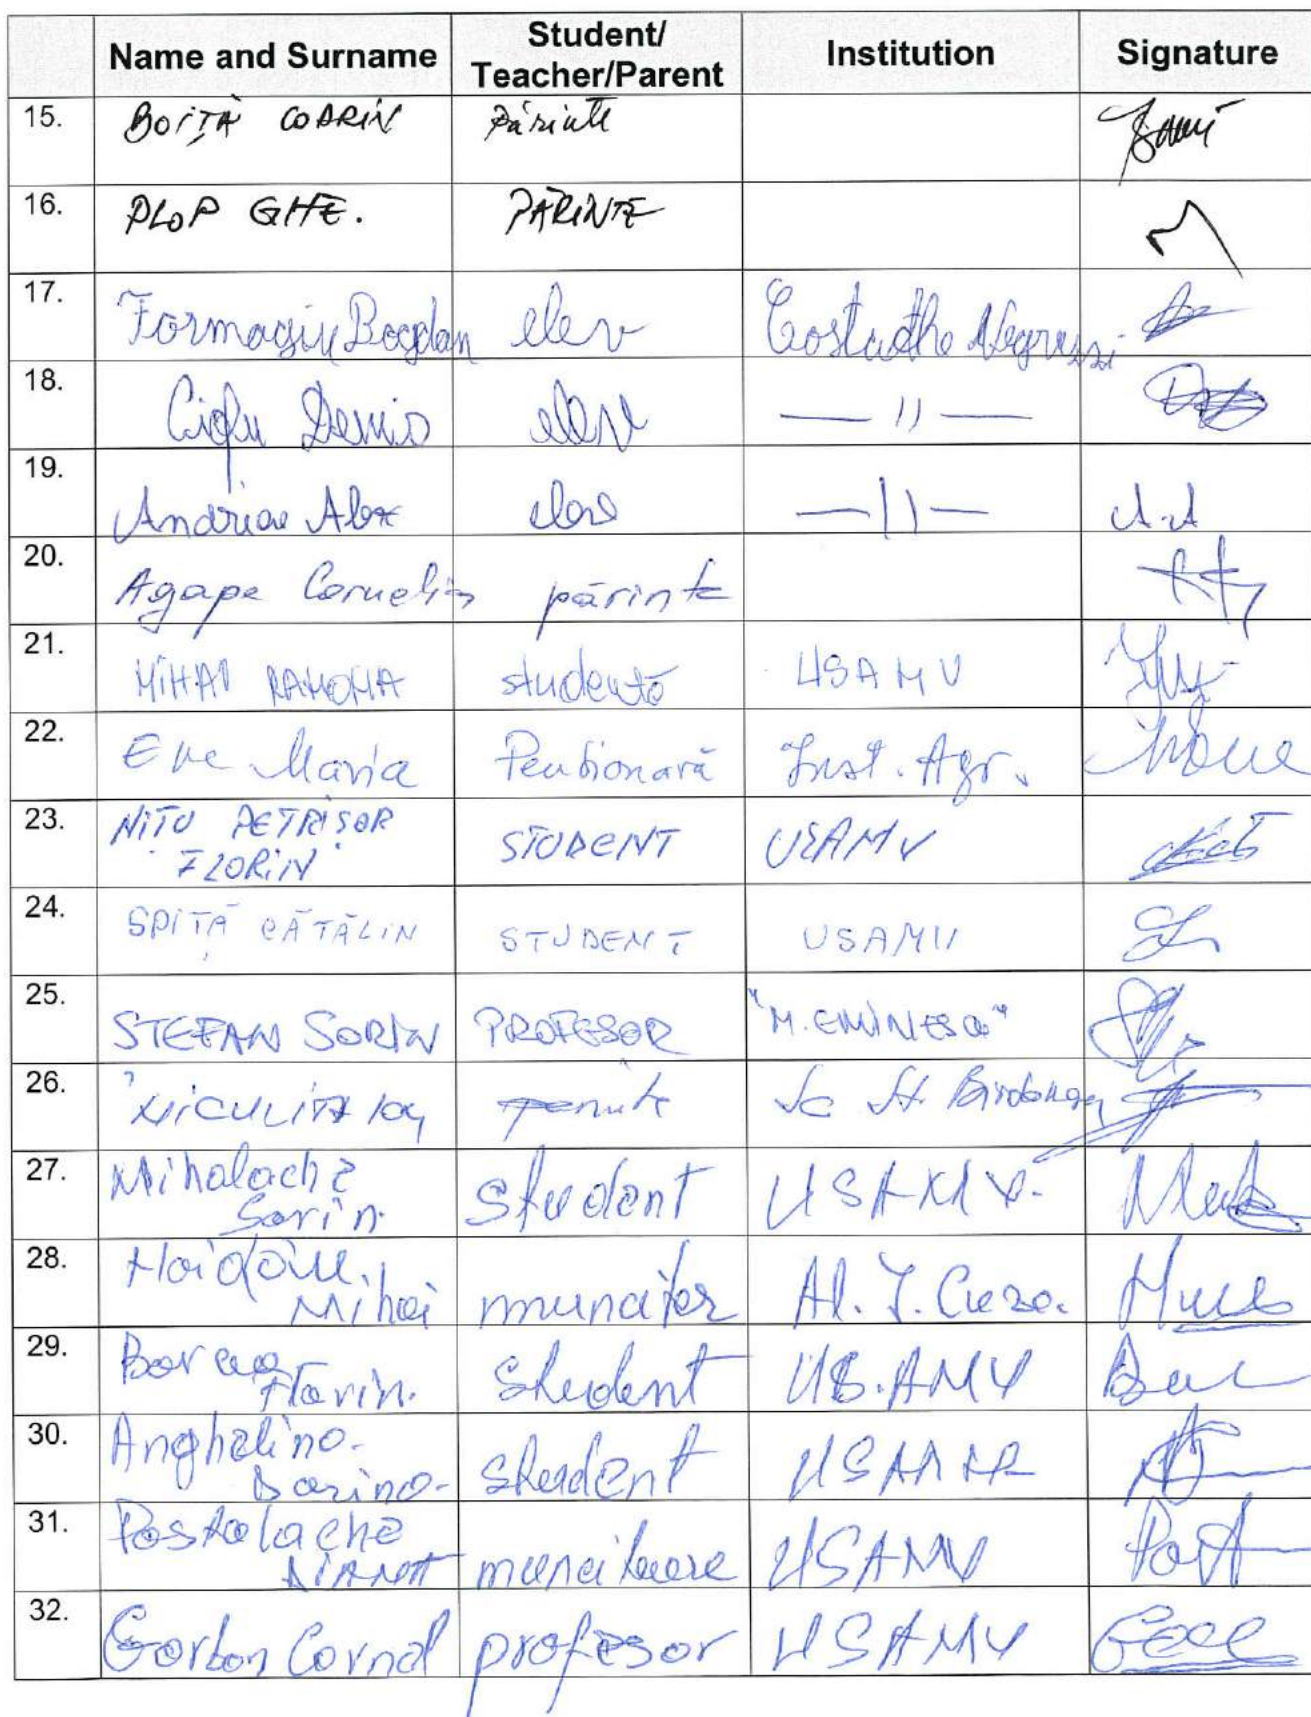 Name and Surname Student/ Teacher/Parent Institution Signature
15. BOIȚĂ CODRIN Părinte
16. PLOP GHE. PĂRINTE
17. Formagiu Bogdan elev Costache Negruzzi
18. Denis elev — 11 —
19. Andriae Alex elev — 11 —
20. Agape Cornelia părinte
21. MIHAI RAMONA studentă USAMV
22. Ene Maria Pensionară Inst. Agr.
23. NIȚU PETRIȘOR STUDENT USAMV
FLORIN
24. SPIȚĂ CĂTĂLIN STUDENT USAMV
25. STEFAN SORIN PROFESOR "M. EMINESCU"
26. NICULIȚĂ Sc St. Birsanescu
27. Mihalache student USAMV.
Sorin
28. Mihai muncitor Al. I. Cuza.
29. Florin. student US.AMV
30. Anghelina student USAMV
Darina
31. Postolache muncitoare USAMV
DIANA
32. Gorban Cornel profesor USAMV